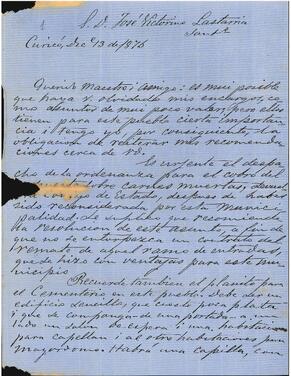 S. D. José Victorino Lastarria
Sant.
Curicó, Dic 13 de 1876
Querido Maestro i amigo: es mui posible
que haya V. olvidado mis encargos, co
mo asuntos de mui poco valor; pero ellos
tienen para este pueblo cierta importan
cia i tengo yo, por consiguiente, la
obligacion de reiterar mis recomenda
ciones cerca de Vd.
Es urjente el despa
cho de la ordenanza para el cobro del
sobre carnes muertas,
de Estado, despues de haber
sido por esta Munici
palidad. Le suplico que recomiende
la resolucion de este asunto, a fin de
que no se entorpezca un contrato de
remate de aquel ramo de entradas
que se hizo con ventajas para este mu
nicipio
Recuerde tambien el planito para
el Cementerio de este pueblo. Debe ser un
edificio sencillo, que cueste poca plata
i que se componga de una portada, a un
lado un salon de espera i una habitacion
para capellan i al otro habitaciones para
mayordomo. Habrá una capilla, con